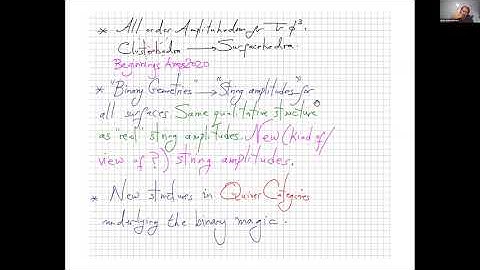 * All order Amplituhedra for Tr φ³.
Clusterhedra → Surfacehedra.
Beginnings Amps2020
* "Binary Geometries" → "String amplitudes" for
all surfaces. Same qualitative structure
as "real" string amplitudes. New (kind of/
view of?) string amplitudes.
* New structures in Quiver Categories
underlying the binary magic.